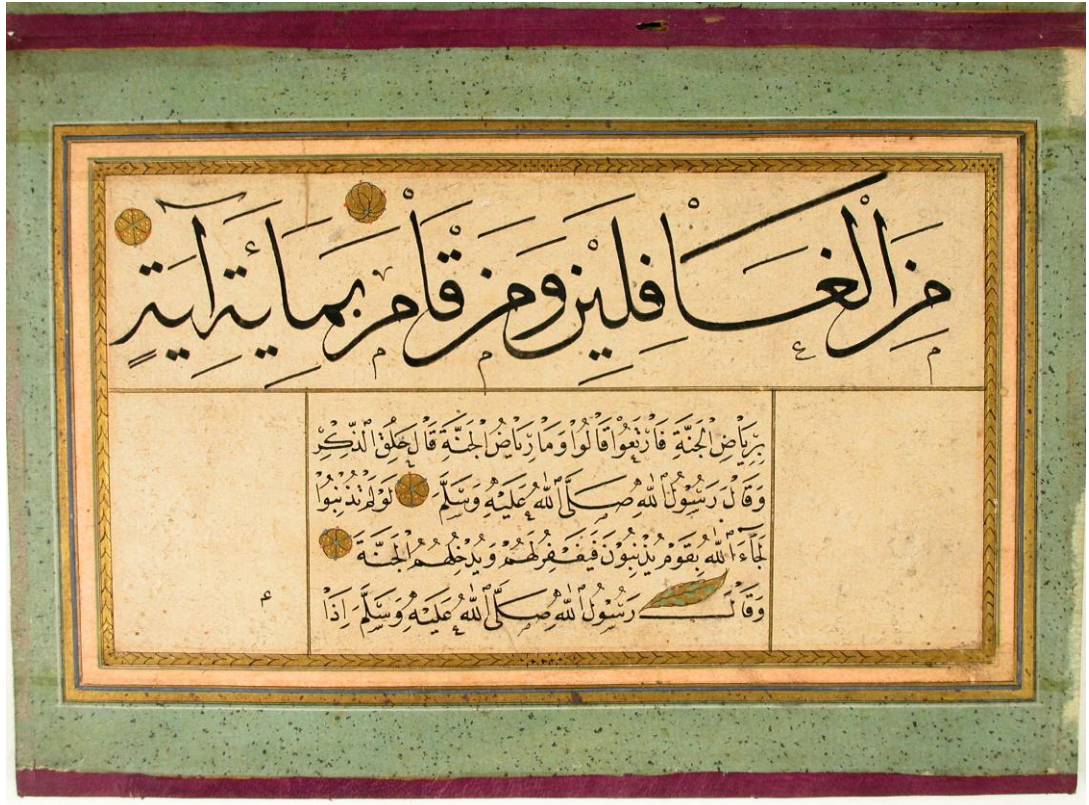 مِنَ الْغَافِلِينَ وَمَنْ قَامَ بِمِائَةِ آيَةٍ
بِرِيَاضِ الْجَنَّةِ فَارْتَعُوا قَالُوا وَمَا رِيَاضُ الْجَنَّةِ قَالَ حِلَقُ الذِّكْرِ
وَقَالَ رَسُولُ اللهِ صَلَّى اللهُ عَلَيْهِ وَسَلَّمَ لَوْ لَمْ تُذْنِبُوا
لَجَاءَ اللهُ بِقَوْمٍ يُذْنِبُونَ فَيَغْفِرُ لَهُمْ وَيُدْخِلُهُمُ الْجَنَّةَ
وَقَالَ رَسُولُ اللهِ صَلَّى اللهُ عَلَيْهِ وَسَلَّمَ إِذَا